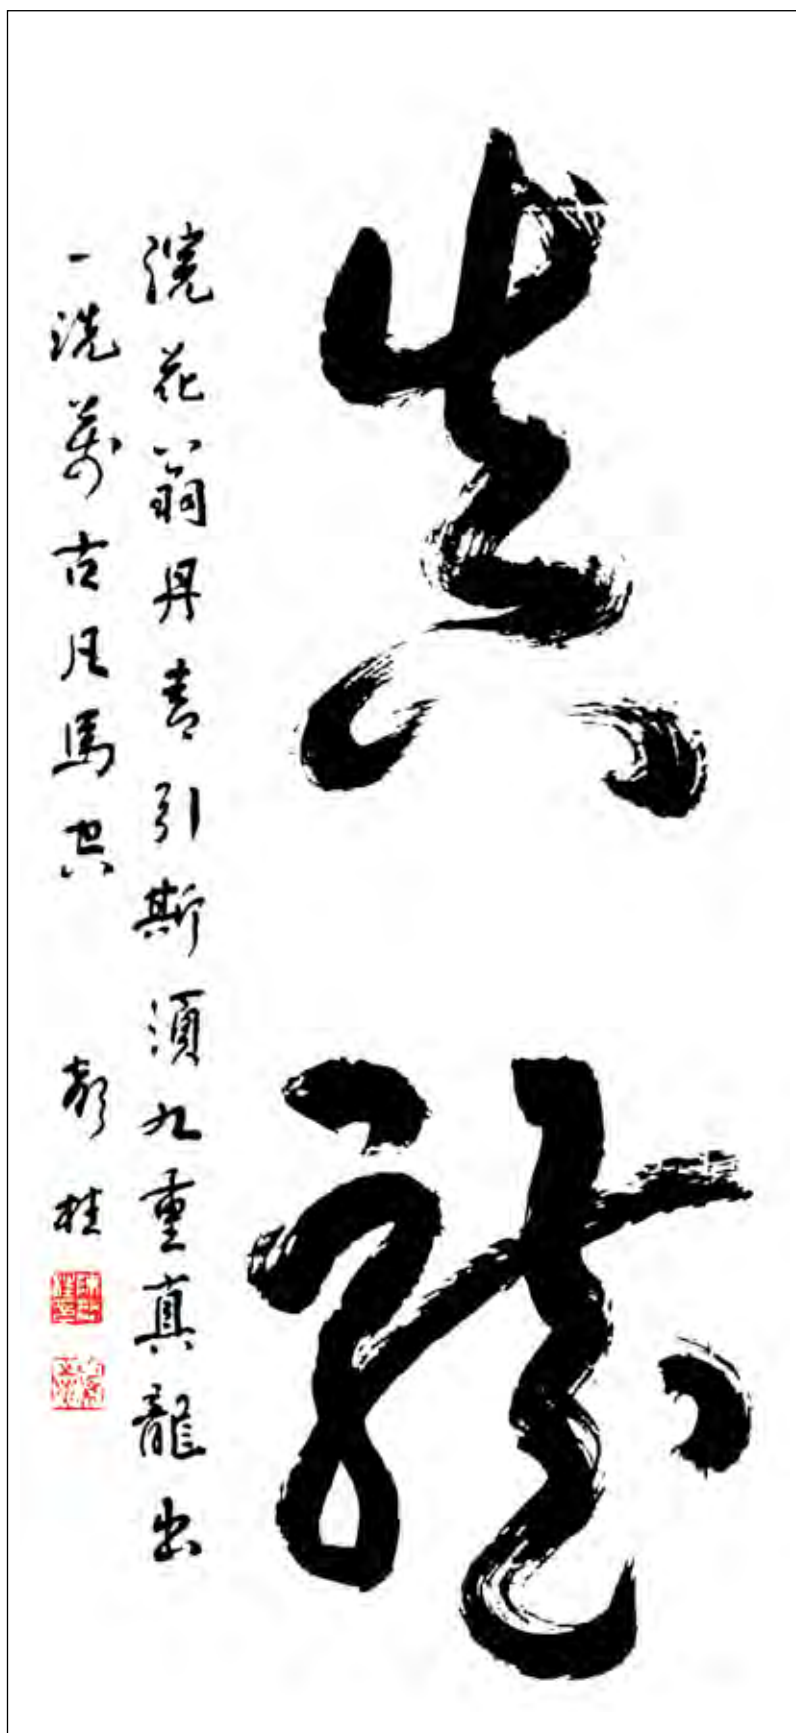 真龍
浣花翁丹青引斯須九重真龍出
一洗萬古凡馬空
桂